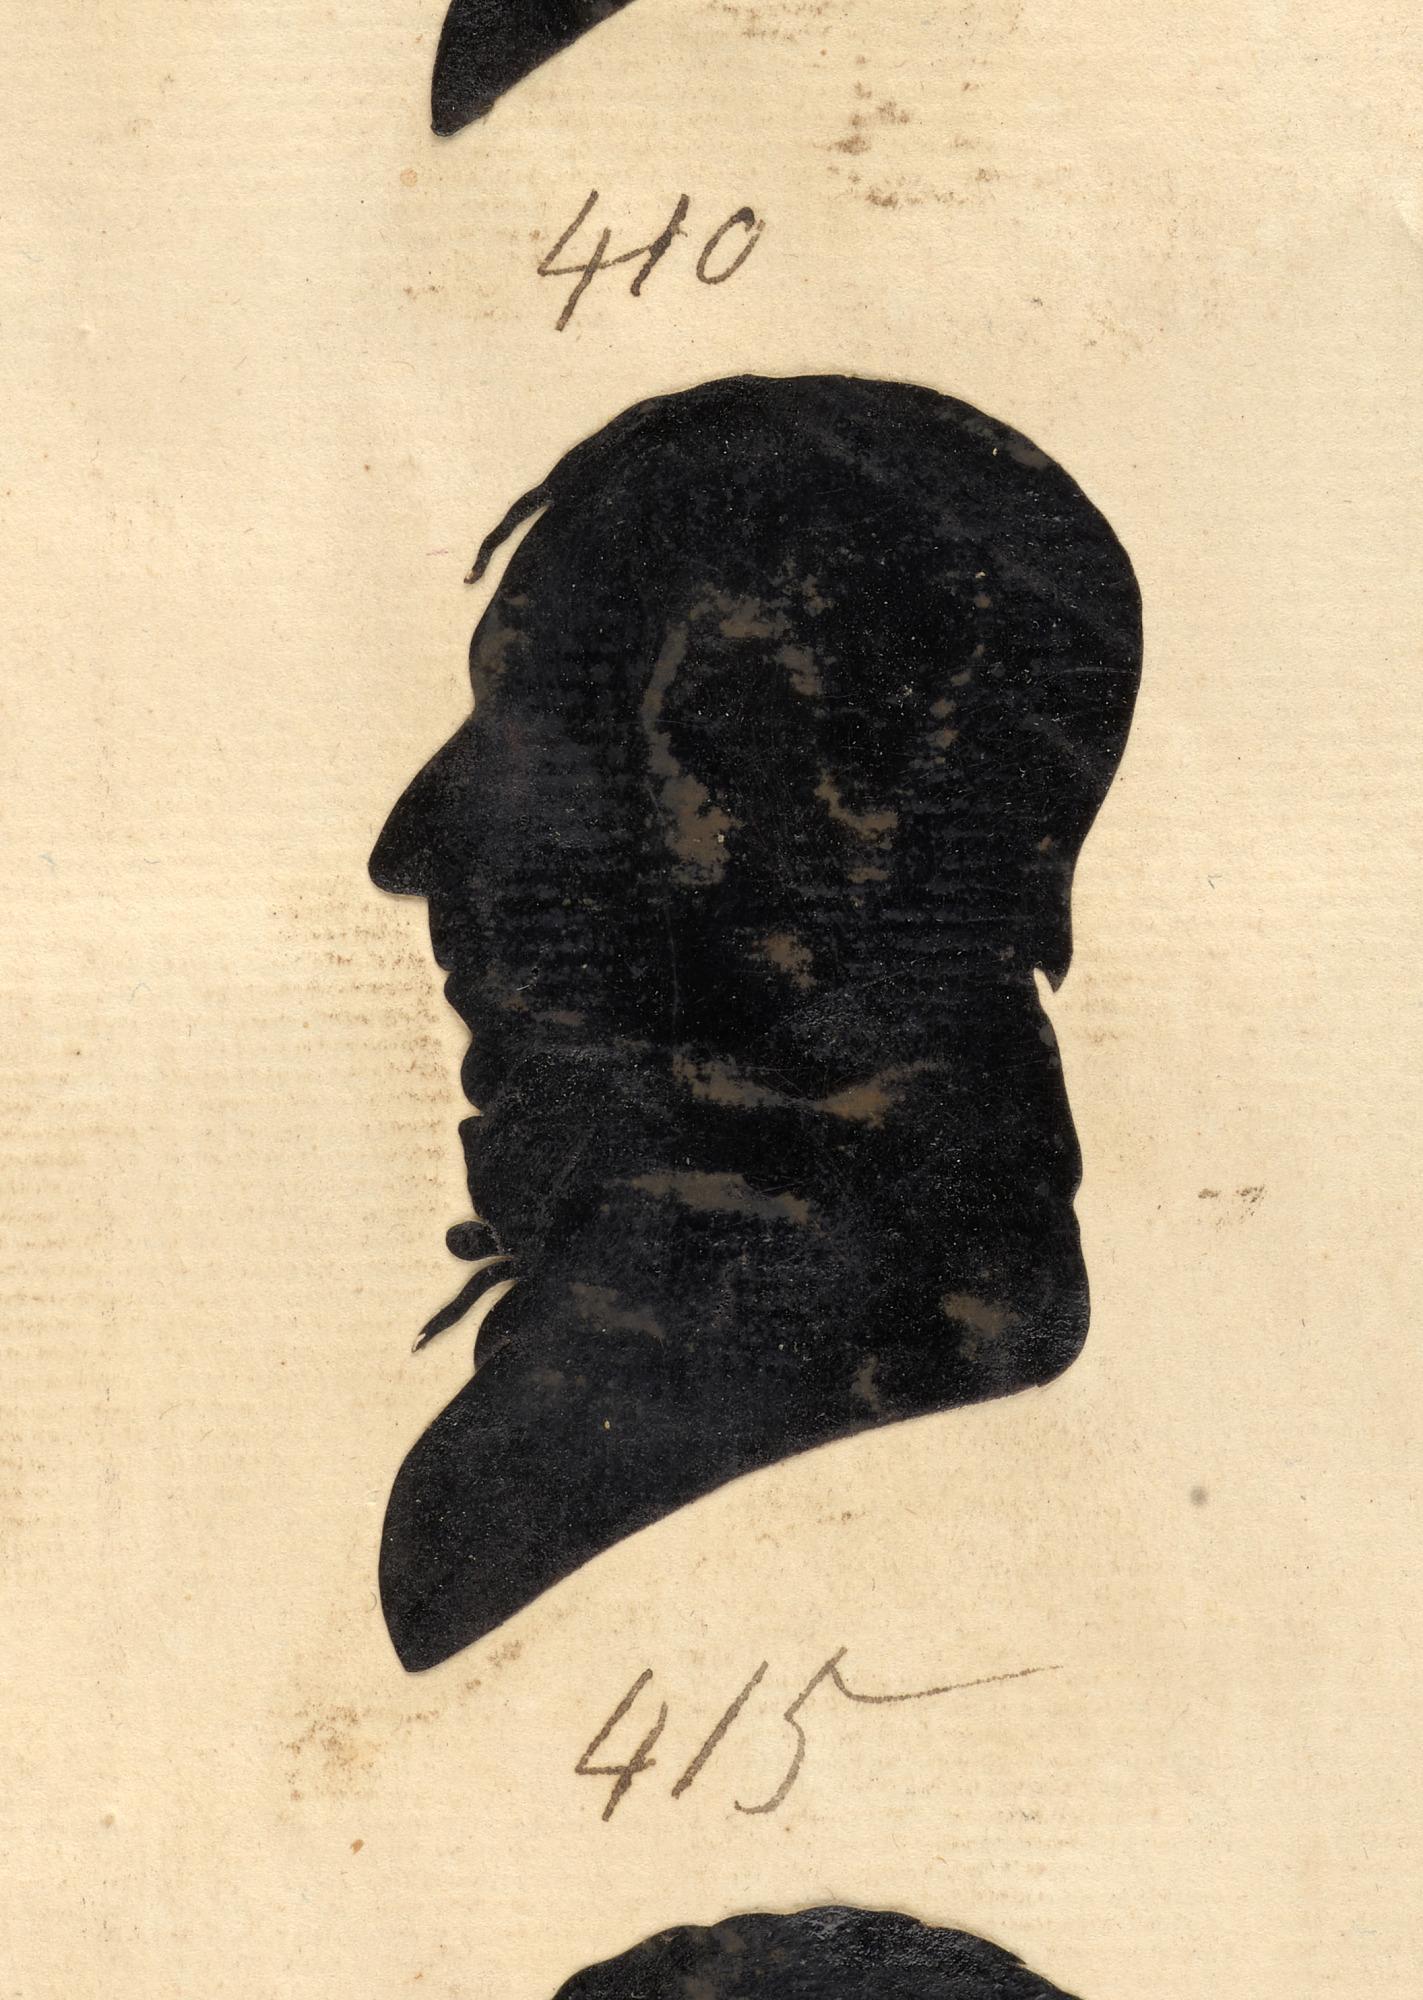 410
415